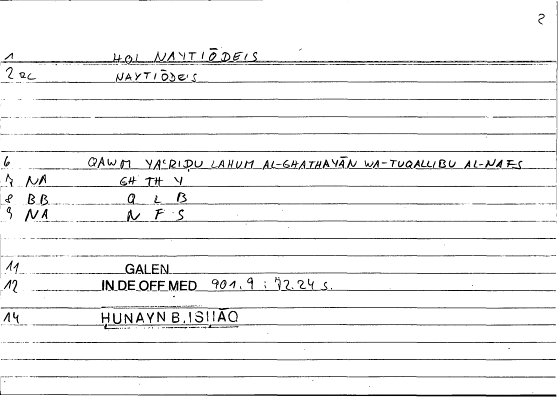 2
1 HOI NAYTIŌDEIS
2 RC NAYTIŌDEIS
6 QAWM YAʿRIḌU LAHUM AL-GHATHAYĀN WA-TUQALLIBU AL-NAFS
7 NA GH TH Y
8 BB Q L B
9 NA N F S
11 GALEN
12 IN DE OFF MED 901.9 : 72.24 s.
14 HUNAYN B. ISIIĀQ